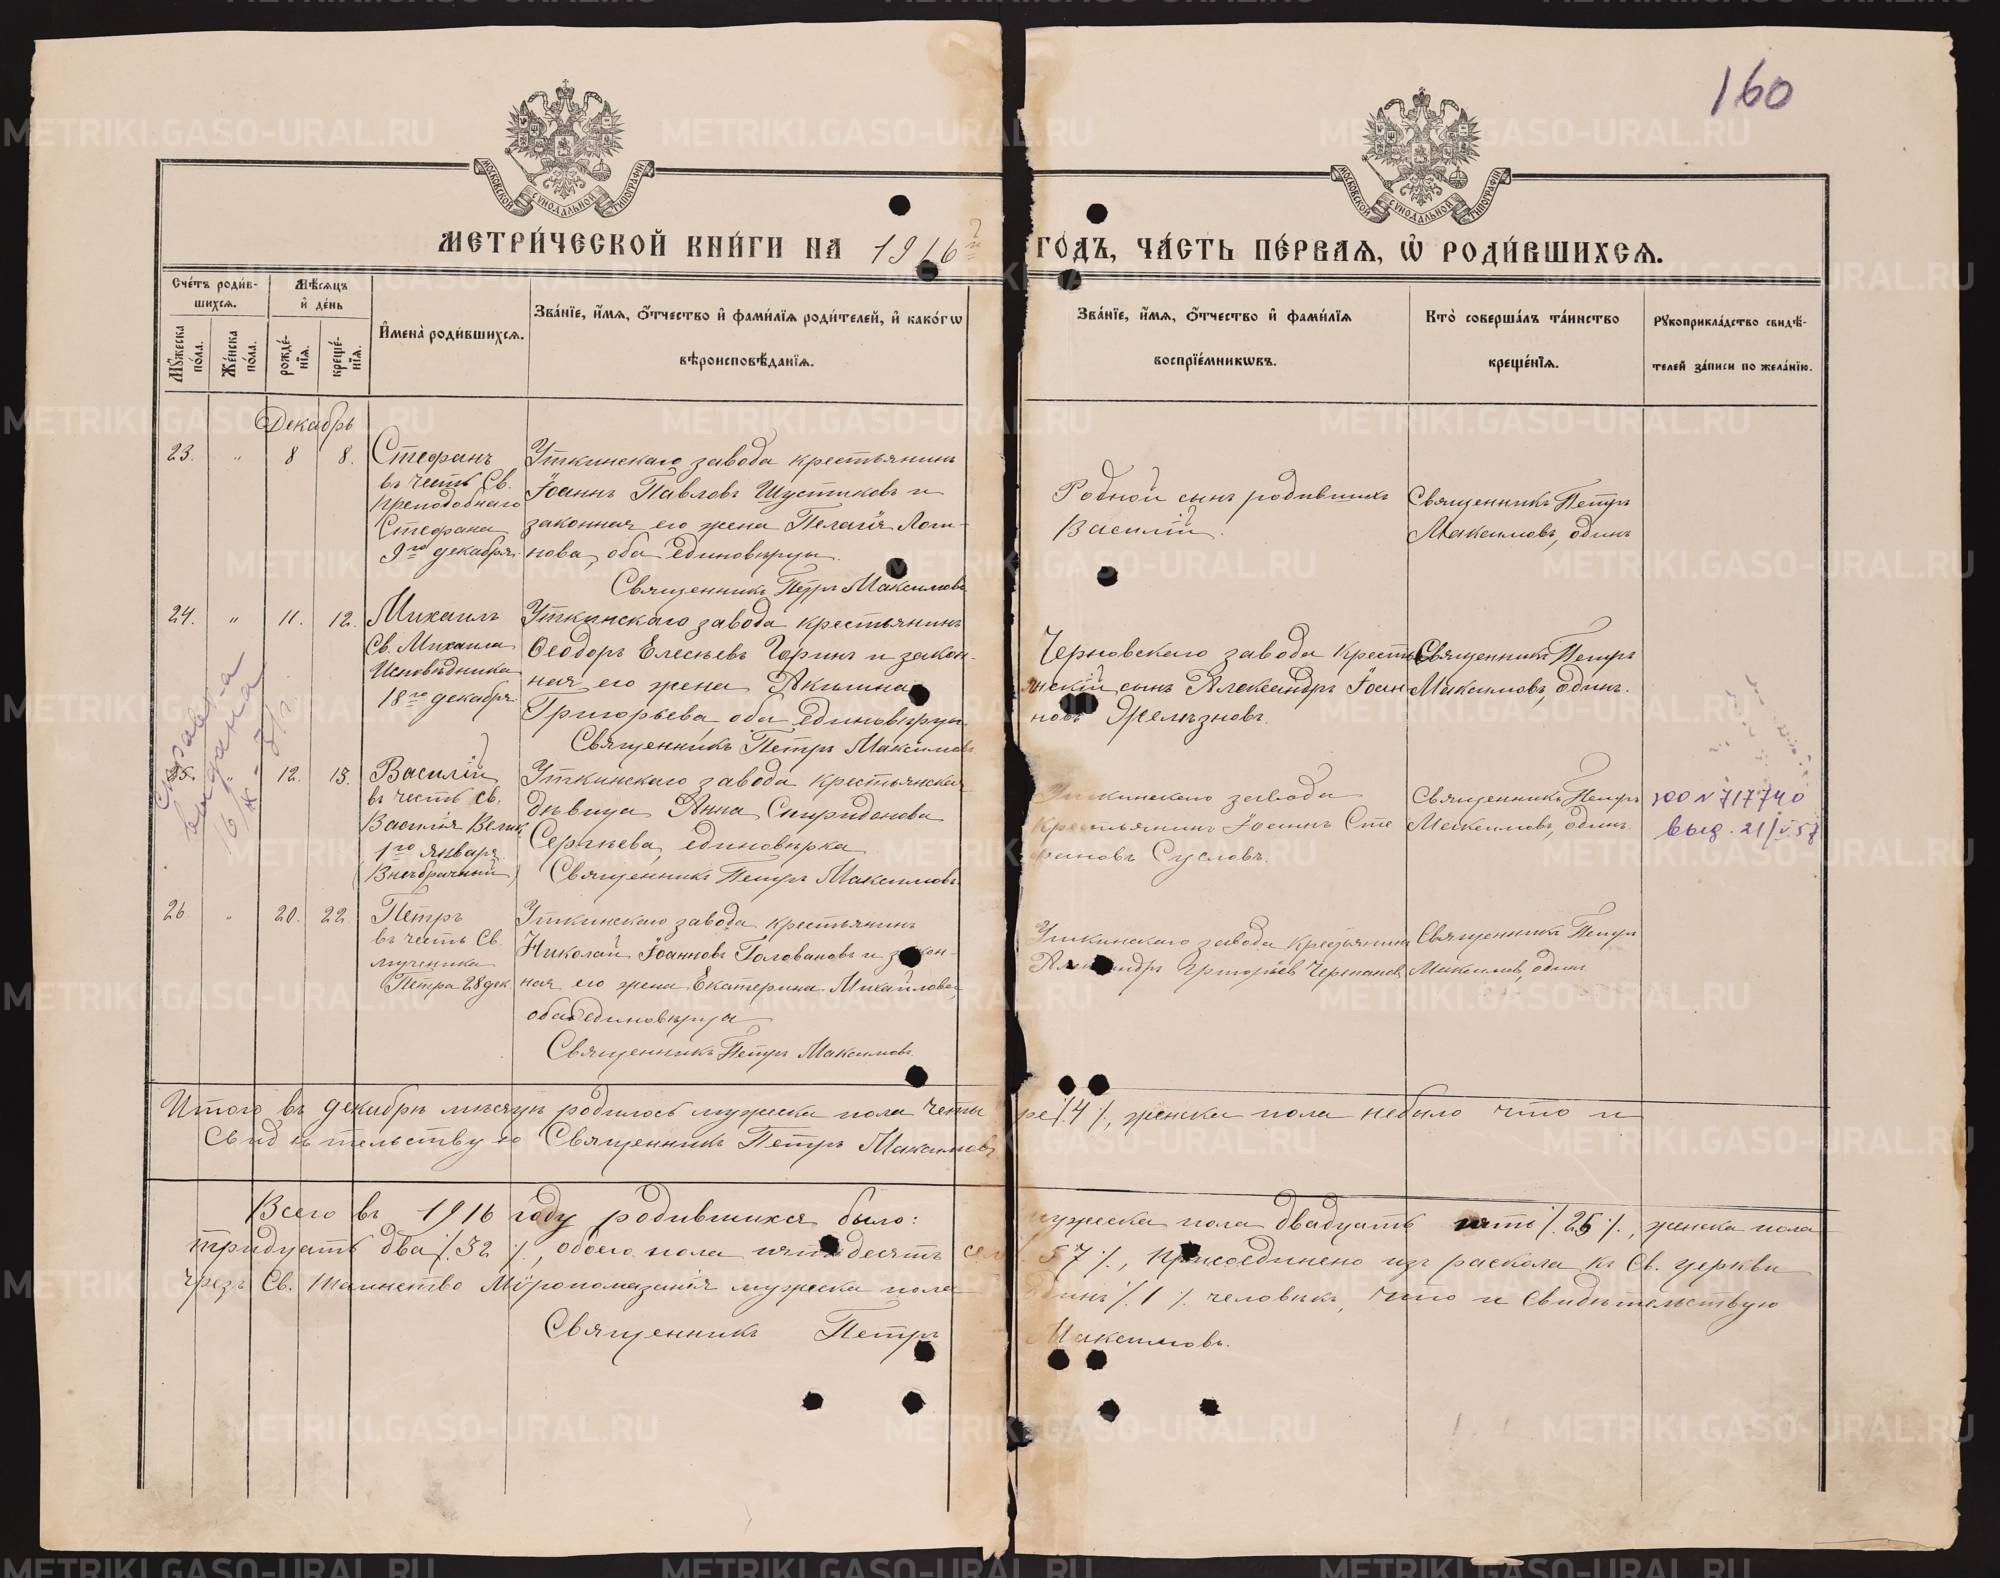 160
МОСКОВСКОЙ СѴНОДАЛЬНОЙ ТИПОГРАФІИ
МОСКОВСКОЙ СѴНОДАЛЬНОЙ ТИПОГРАФІИ
МЕТРИ́ЧЕСКОЙ КНИ́ГИ НА 1916 ГО́ДЪ, ЧА́СТЬ ПЕ́РВАЯ, Ѡ РОДИ́ВШИХСЯ.
Сче́тъ роди́вшихся.
Мꙋ́жеска по́ла.
Же́нска по́ла.
Мѣ́сяцъ и де́нь
рожде́нїя.
креще́нїя.
И҆мена̀ роди́вшихся.
Зва́нїе, и҆́мя, ѻ҆́тчество и҆ фами́лїя роди́телей, и҆ како́гѡ
вѣроисповѣ́данїя.
Зва́нїе, и҆́мя, ѻ҆́тчество и҆ фами́лїя
воспрїе́мникѡвъ.
Кто̀ соверша́лъ та́инство
креще́нїя.
Рꙋкоприкла́дство свидѣ́-
телей за́писи по жела́нїю.
Декабрь
23. " 8 8.
Стефанъ
въ честь Св.
преподобнаго
Стефана
9го декабря.
Уткинскаго завода крестьянинъ
Іоаннъ Павловъ Шустиковъ и
законная его жена Пелагія Логи-
нова, оба единовѣрцы.
Священникъ Петръ Максимовъ
Родной сынъ родившихъ
Василій.
Священникъ Петръ
Максимовъ, одинъ
24. " 11. 12.
Михаилъ
Св. Михаила
Исповѣдника
18го декабря
Уткинскаго завода крестьянинъ
Ѳеодоръ Елесѣевъ Горинъ и закон-
ная его жена Акилина
Григорьева оба единовѣрцы.
Священникъ Петръ Максимовъ
Черновскаго завода кресть
янскій сынъ Александръ Іоан
новъ Желѣзновъ.
Священникъ Петръ
Максимовъ, одинъ.
25. " 12. 13.
Василій
въ честь св.
Василія Велик.
1го января.
(Внебрачный)
Уткинскаго завода крестьянская
дѣвица Анна Спиридонова
Сергѣева, единовѣрка
Священникъ Петръ Максимовъ.
Уткинскаго завода
крестьянинъ Іоаннъ Сте
фановъ Сусловъ.
Священникъ Петръ
Максимовъ, одинъ.
ЮО N 717740
выд. 21/V 57
выдана
26 " 20. 22
Петръ
въ честь Св.
мученика
Петра 28 дек.
Уткинскаго завода крестьянинъ
Николай Іоанновъ Головановъ и закон-
ная его жена Екатерина Михайлова,
оба единовѣрцы
Священникъ Петръ Максимовъ.
Уткинскаго завода крестьянинъ
Александръ Григорьев Черепановъ
Священникъ Петръ
Максимовъ, одинъ
Итого въ декабрѣ мѣсяцѣ родилось мужеска пола четы ре /.4 /., женска пола небыло что и
свидѣтельствую Священникъ Петръ Максимовъ
Всего въ 1916 году родившихся было: мужеска пола двадцать пять /. 25 /., женска пола
тридцать два /. 32 /., обоего пола пятьдесят сем 57 /., присоединено изъ раскола къ Св. церкви
чрезъ Св. таинство Мѵропомазанія мужеска пола одинъ /. 1 /. человѣкъ, что и свидѣтельствую
Священникъ Петръ Максимовъ.
METRIKI.GASO-URAL.RU